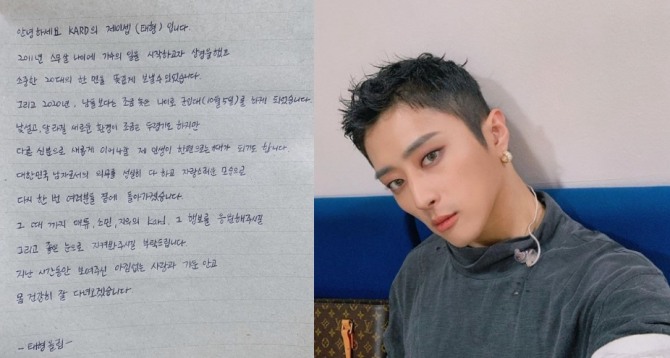 안녕하세요 KARD의 제이셉(태형) 입니다.
2011년 스무살 나이에 가수의 일을 시작하고자 상경을했고
소중한 20대의 한 면을 뜻깊게 보낼수 있었습니다.
그리고 2020년, 남들보다는 조금 늦은 나이로 군입대(10월5일)를 하게 되었습니다.
낯설고, 달라질 새로운 환경이 조금은 두렵기도 하지만
다른 신분으로 새롭게 이어나갈 제 인생이 한편으로는 기대가 되기도 합니다.
대한민국 남자로서의 의무를 성실히 다 하고 자랑스러운 모습으로
다시 한 번 여러분들 곁에 돌아가겠습니다.
그 때 까지 매튜, 소민, 지우의 Kard, 그 행보를 응원해주시길
그리고 좋은 눈으로 지켜봐주시길 부탁드립니다.
지난 시간동안 보여주신 아낌없는 사랑과 기운 안고
몸 건강히 잘 다녀오겠습니다.
-태형올림-